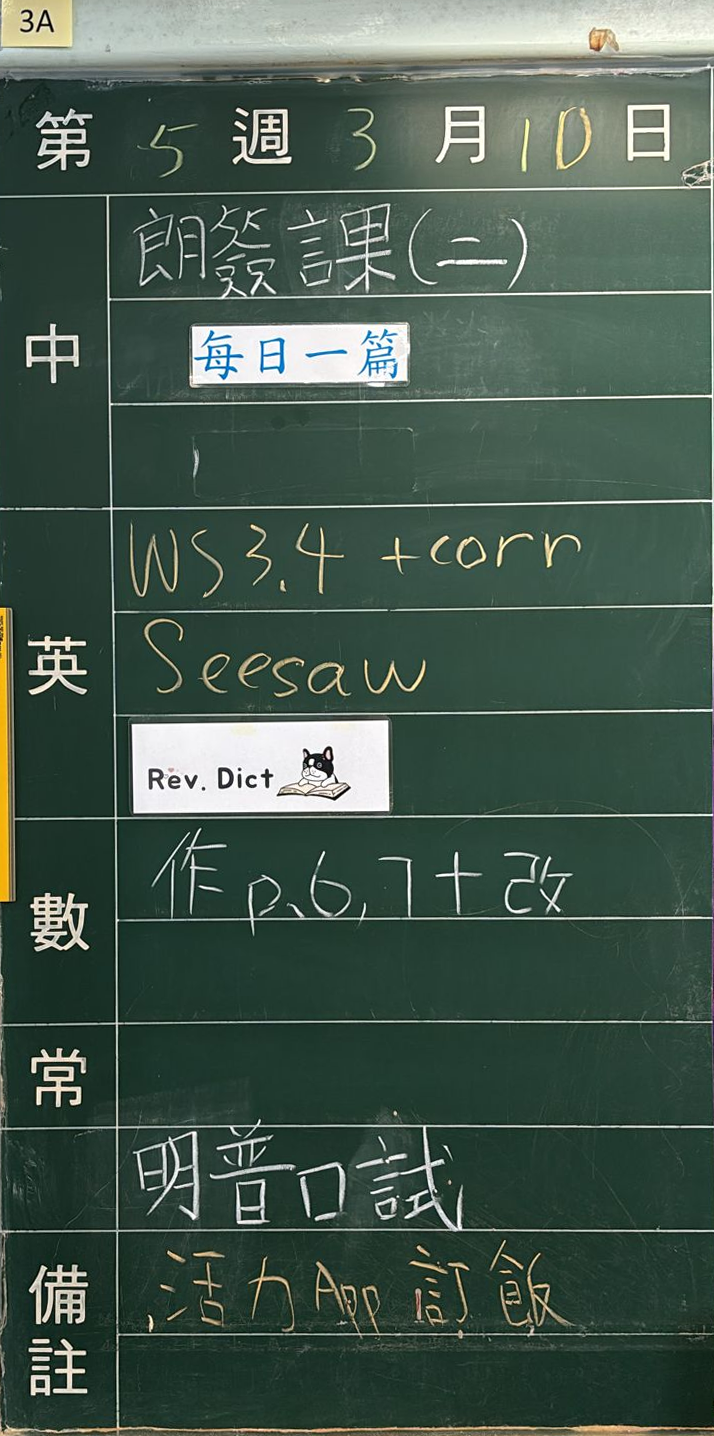 3A
第5週3月10日
中
朗簽課(二)
每日一篇
英
WS3.4 +corr
Seesaw
Rev. Dict
數
作p.6,7+改
常
明普口試
備註
活力App訂飯